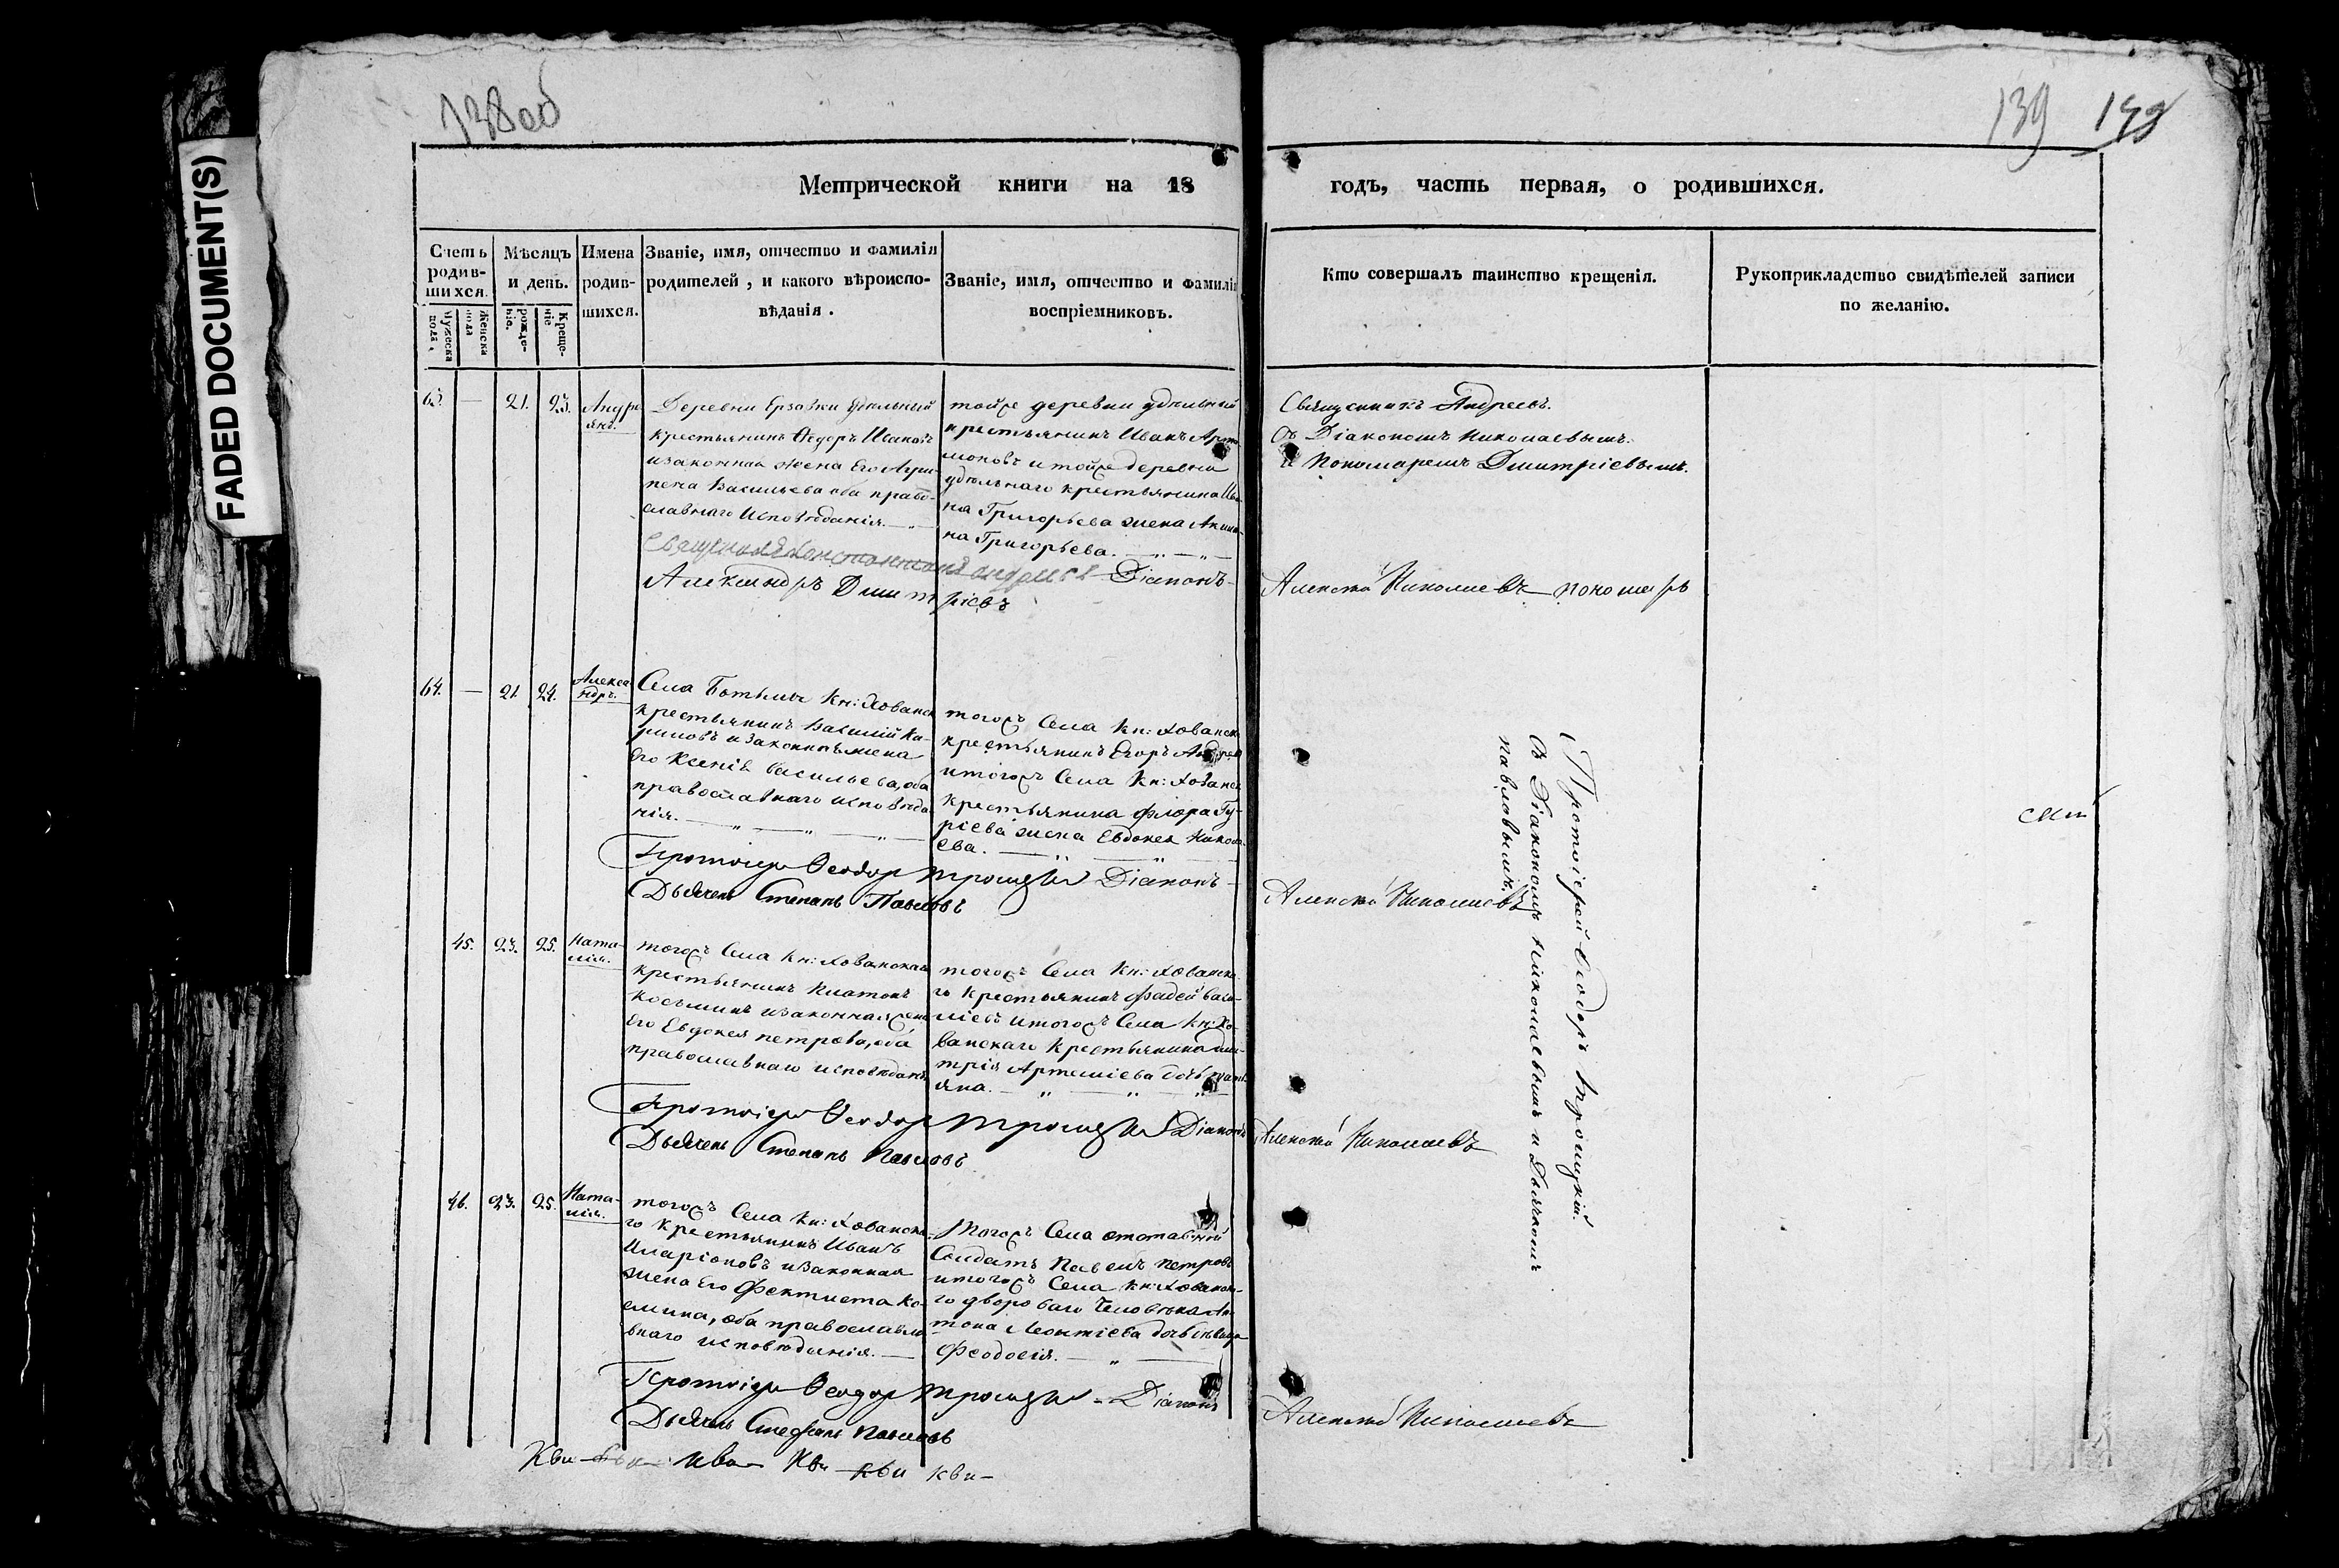 FADED DOCUMENT(S)
138 об
139 149
Метрической книги на 18
годъ, часть первая, о родившихся.
Счетъ родившихся.
Мужеска пола.
Женска пола
Мѣсяцъ и день.
рожденіе.
Крещеніе
Имена родившихся.
Званіе, имя, отчество и фамилія
родителей, и какого вѣроиспо-
вѣданія.
Званіе, имя, отчество и фамилія
воспріемниковъ.
Кто совершалъ таинство крещенія.
Рукоприкладство свидѣтелей записи
по желанію.
63. — 21. 23. Андр
янъ.
Деревни Ерзовки удѣльный
крестьянинъ Ѳедоръ Ивановъ
изаконная жена Его Агри-
пена Васильева оба право-
славнаго Исповѣданія.
тойже деревни удѣльный
крестьянинъ Иванъ Арта-
моновъ итойже деревни
удѣльнаго крестьянина Ива-
на Григорьева жена Акили-
на Григорьева.
Священникъ Андреевъ.
съ Діакономъ Николаевымъ.
и Пономаремъ Дмитріевымъ.
Священникъ Константинъ Андреевъ Діаконъ
Алексѣй Николаевъ пономарь
Александръ Дмитріевъ
64. — 21 24. Алекса
ндръ.
Села Ботьмы Кн: Хованск
крестьянинъ Василій Ка-
риловъ изаконная жена
Его Ксенія Васильева, оба
православнаго исповѣда
нія.
тогожъ Села Кн: Хованск
крестьянинъ Егоръ Андрее
итогожъ Села Кн: Хованск
крестьянина Флора Гу-
ріева жена Евдокея Никола
ева.
Протоіерей Ѳеодоръ Троицкій.
съ Діакономъ Николаевымъ и Дьячкомъ
Павловымъ.
Протоіерей Ѳеодоръ Троицкій Діаконъ
Алексѣй Николаевъ
Дьячекъ Степанъ Павловъ
45. 23. 25. Ната-
лія.
тогожъ Села Кн: Хованскаго
крестьянинъ Платонъ
Косминъ изаконная жена
Его Евдокея петрова, оба
православнаго исповѣдан.
тогожъ Села Кн: Хованска-
го крестьянинъ Фадей Васи-
ліевъ итогожъ Села Кн: Хо-
ванскаго Крестьянина Дми-
трія Артеміева дочь Тать
яна.
Протоіерей Ѳеодоръ Троицкій Діаконъ
Алексѣй Николаевъ
Дьячекъ Степанъ Павловъ
46. 23. 25. Ната-
лія.
тогожъ Села Кн: Хованска-
го крестьянинъ Иванъ
Иларіоновъ изаконная
жена Его Фектиста Ко-
смина, оба православ-
внаго исповѣданія.
Тогожъ Села отставной
Солдатъ Павелъ Петровъ
итогожъ Села Кн: Хованска-
го двороваго Человѣка Ан
тона Леонтіева дочь дѣвица
Феодосія.
Протоіерей Ѳеодоръ Троицкій Діаконъ
Алексѣй Николаевъ
Дьячекъ Стефанъ Павловъ